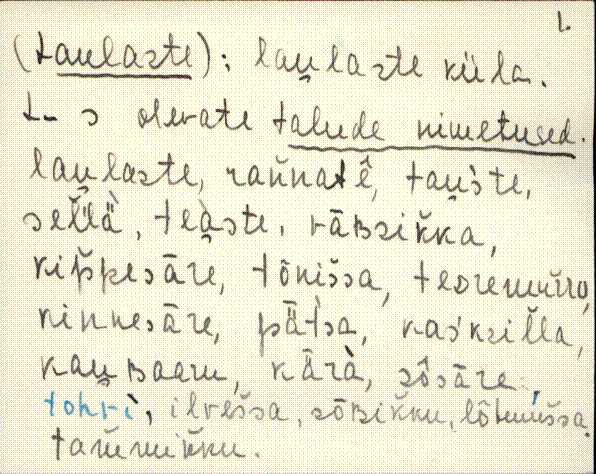 1.
(taulaste); lau̯laste küla.
t-s olevate talude nimetused.
lau̯laste, rañnatê, tau̯s̀te,
sel̆lä̀, teà̯ste, rāʙzik̆ka,
kip̆pesāre, tōnis̆sa, teoremur̆ru,
kinnesāre, pä̆t̀sa, kas̀ksil̆la,
kau̯ʙaaru, kārà, sôsāre,
tohvì, ilves̆sa, sōʙik̆ku, lôhmus̆sa,
tam̆mik̆ku.